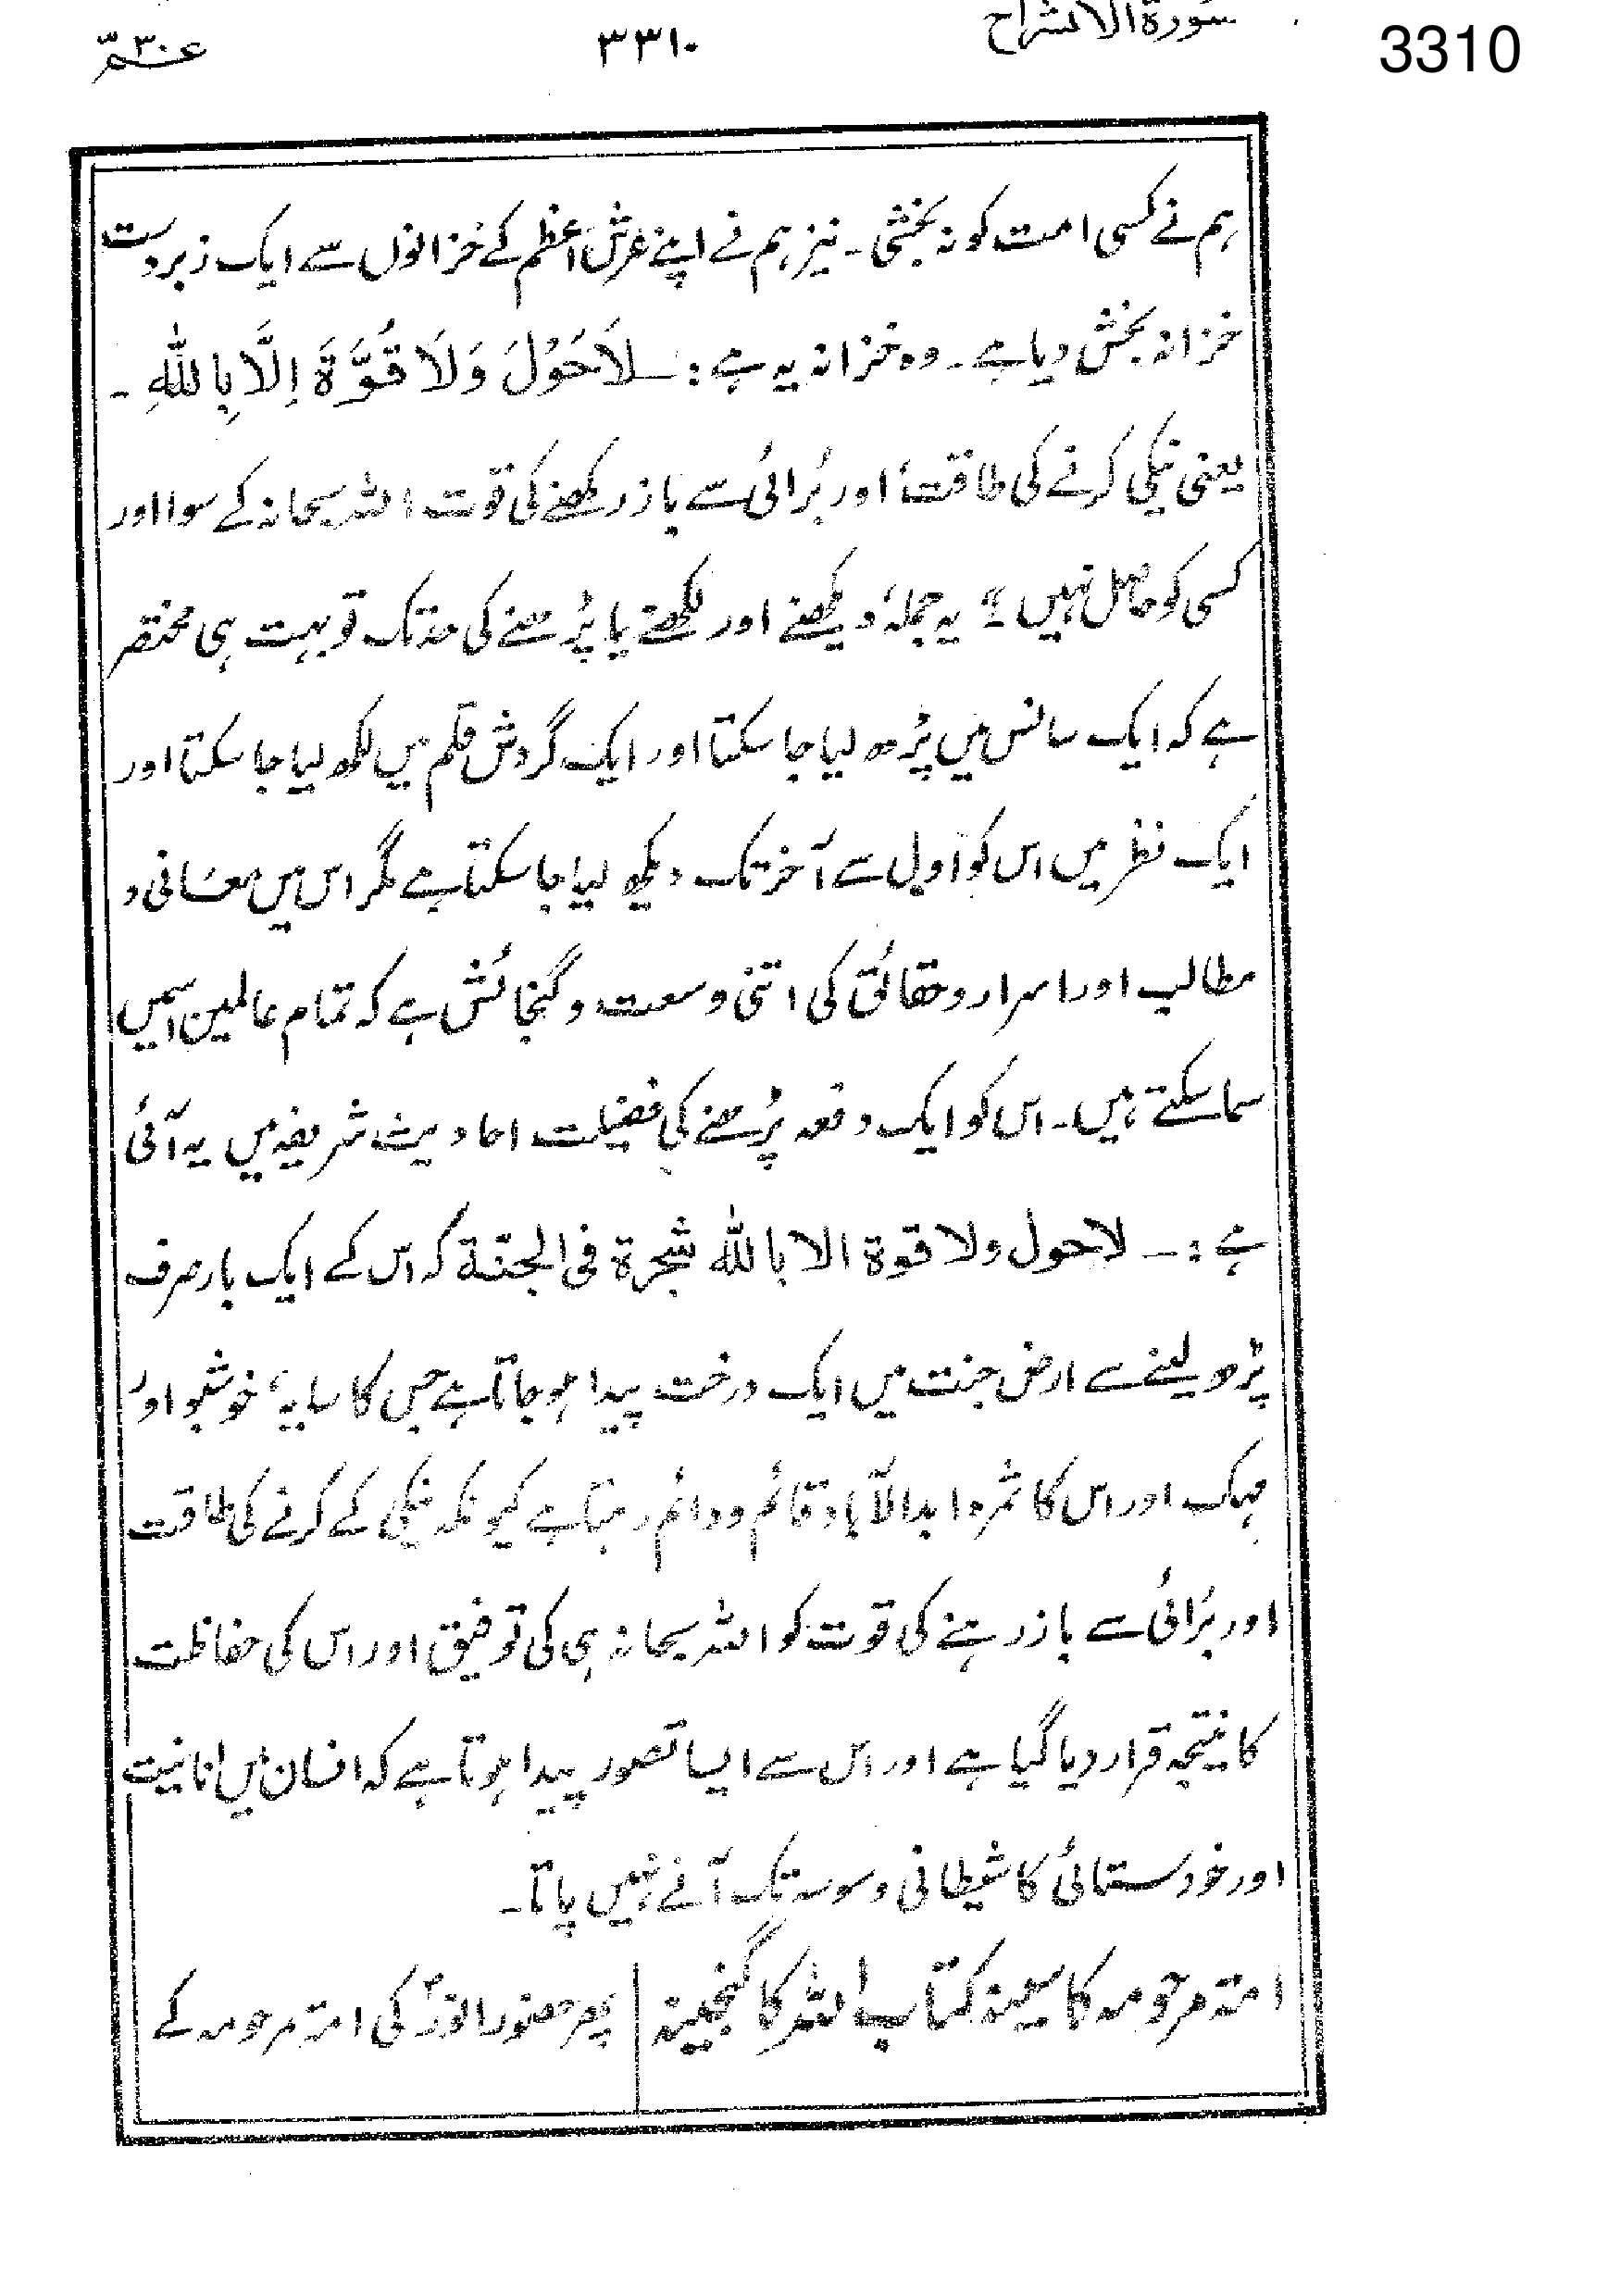 سورة الانشراح ۳۳۱۰ عـــمّ ۳۰
3310
ہم نے کسی امت کو نہ بخشی۔ نیز ہم نے اپنے عرش اعظم کے خزانوں سے ایک زبردست
خزانہ بخش دیا ہے۔ وہ خزانہ یہ ہے :۔ لَاحَوْلَ وَلَا قُوَّةَ اِلَّا بِاللّٰهِ ۔
یعنی نیکی کرنے کی طاقت، اور بُرائی سے باز رکھنے کی قوت اللہ سبحانہ کے سوا اور
کسی کو حاصل نہیں"۔ یہ جملہ، دیکھنے اور لکھنے یا پڑھنے کی حد تک تو بہت ہی مختصر
ہے کہ ایک سانس میں پڑھ لیا جا سکتا اور ایک گردش قلم میں لکھ لیا جا سکتا اور
ایک نظر میں اس کو اول سے آخر تک دیکھ لیا جا سکتا ہے مگر اس میں معانی و
مطالب اور اسرار و حقائق کی اتنی وسعت و گنجائش ہے کہ تمام عالمین اسمیں
سما سکتے ہیں۔ اس کو ایک دفعہ پڑھنے کی فضیلت احادیث شریفہ میں یہ آئی
ہے :۔ لاحول ولا قوة الا باللہ شجرة فی الجنّة کہ اس کے ایک بار صرف
پڑھ لینے سے ارض جنت میں ایک درخت پیدا ہو جاتا ہے جس کا سایہ، خوشبو اور
مہک اور اس کا ثمرہ ابدالآباد قائم و دائم رہتا ہے کیونکہ نیکی کے کرنے کی طاقت
اور برائی سے باز رہنے کی قوت کو اللہ سبحانہ ہی کی توفیق اور اس کی حفاظت
کا نتیجہ قرار دیا گیا ہے اور اس سے ایسا تصور پیدا ہوتا ہے کہ انسان میں انانیت
اور خودستائی کا شیطانی وسوسہ تک آنے نہیں پاتا۔
امۃ مرحومہ کا سینہ کتاب اللہ کا گنجینہ | پھر حضور انورؐ کی امۃ مرحومہ کے